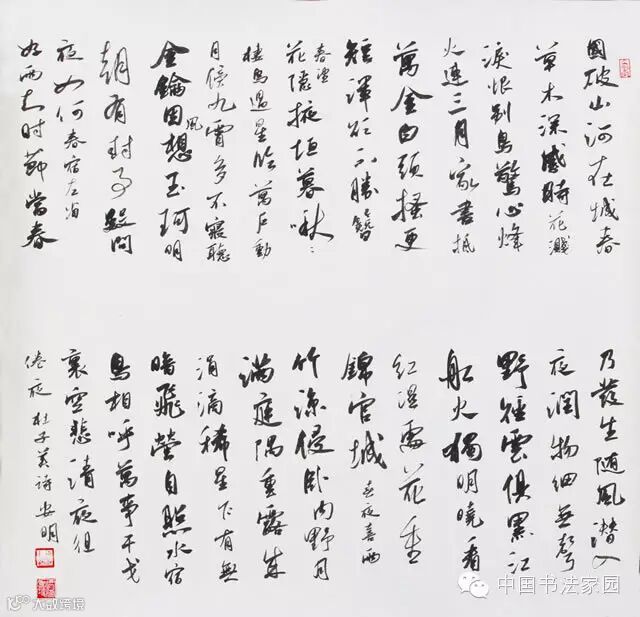 國破山河在城春
草木深感時花濺
淚恨别鳥驚心烽
火連三月家書抵
萬金白頭搔更
短渾欲不勝簪
春望
花隱掖垣暮啾〻
棲鳥過星臨萬户動
月傍九霄多不寢聽
金鑰因風想玉珂明
朝有封事數問
夜如何春宿左省
好雨知时節當春
乃發生随風潛入
夜潤物細無聲
野徑雲俱黑江
船火獨明曉看
紅濕處花重
錦官城 春夜喜雨
竹涼侵卧内野月
滿庭隅重露成
涓滴稀星乍有無
暗飛螢自照水宿
鳥相呼萬事干戈
裏空悲清夜徂
倦夜 杜子美诗 安明
中国书法家园
大数跨境